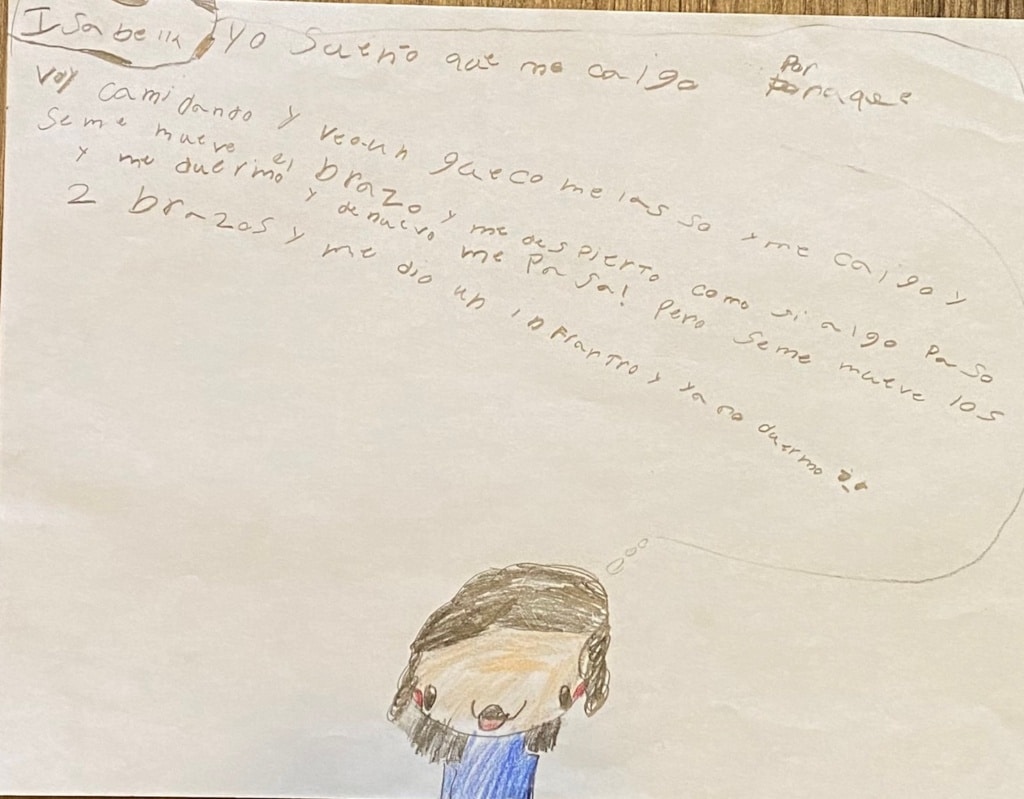 Isabella yo sueño que me caigo por
paraque
voy camidando y veo un gueco me lasso y me caigo y
seme mueve el brazo y me despierto como si algo paso
y me duermo y denuevo me pasa! pero seme mueve los
2 brazos y me dio un infrartro y ya no duermo